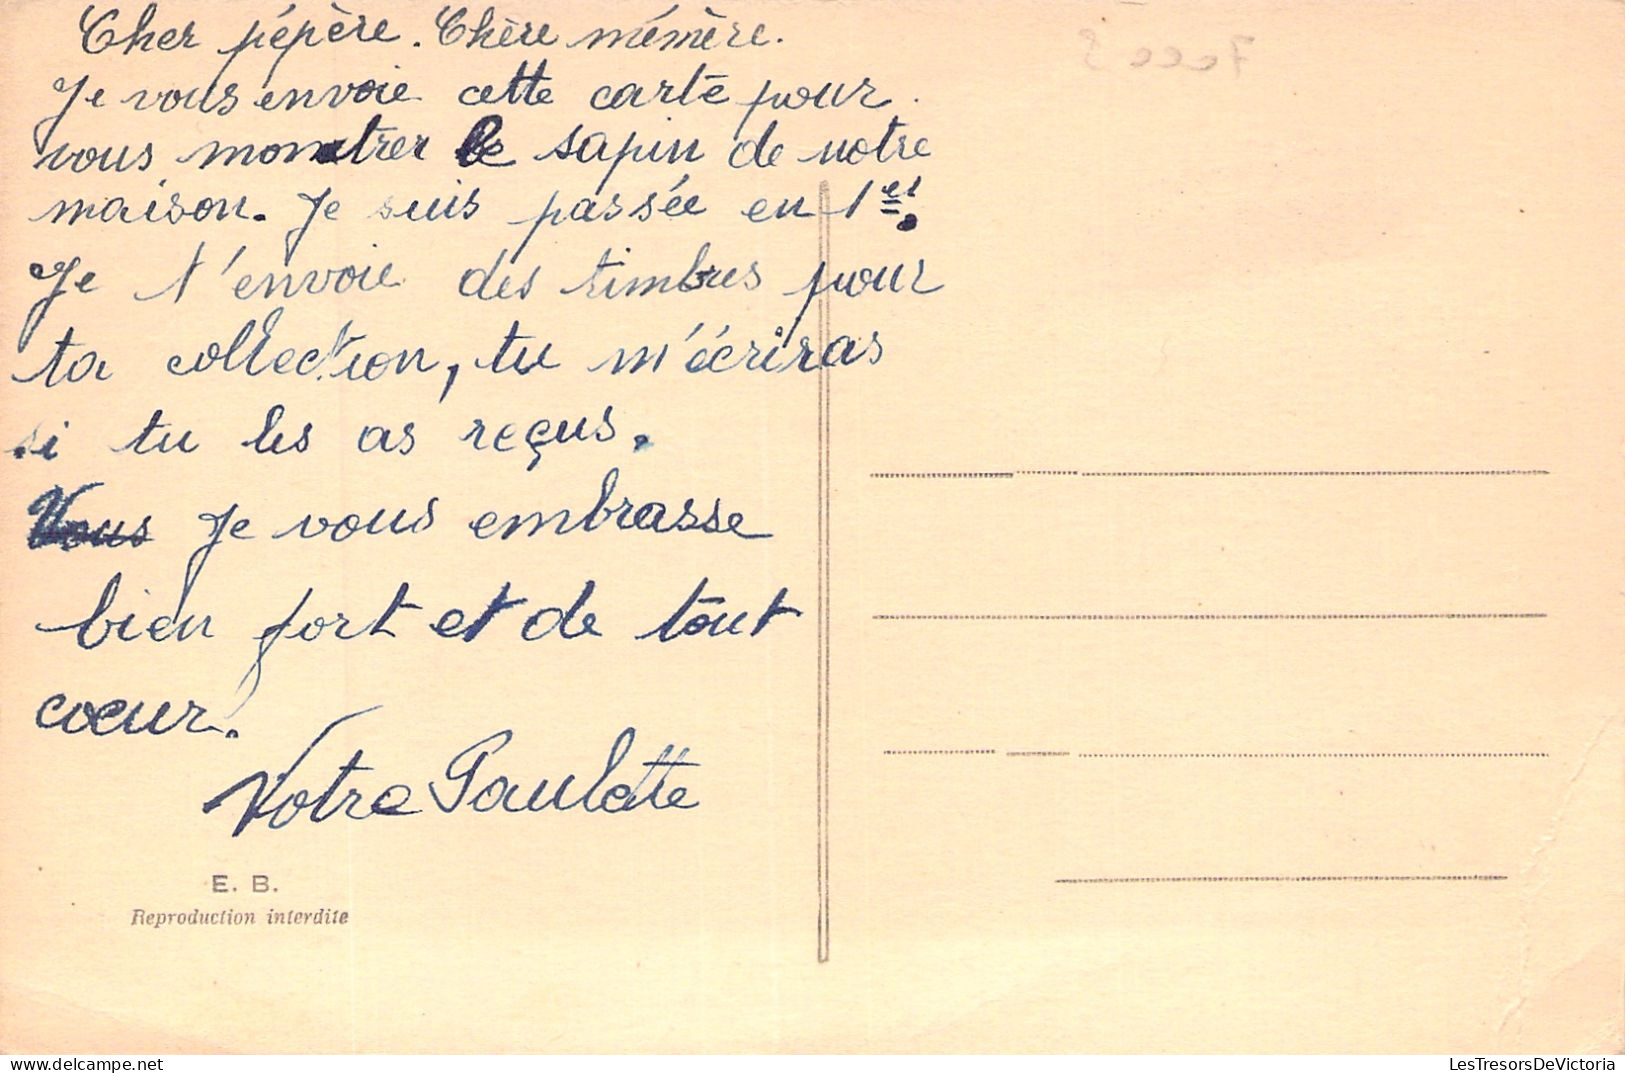 Cher pépère. Chère mémère.
Je vous envoie cette carte pour
vous montrer le sapin de notre
maison. Je suis passée en 1er.
Je t'envoie des timbres pour
ta collection, tu m'écriras
si tu les as reçus.
Vous Je vous embrasse
bien fort et de tout
cœur.
Votre Paulette
E. B.
Reproduction interdite
LesTresorsDeVictoria